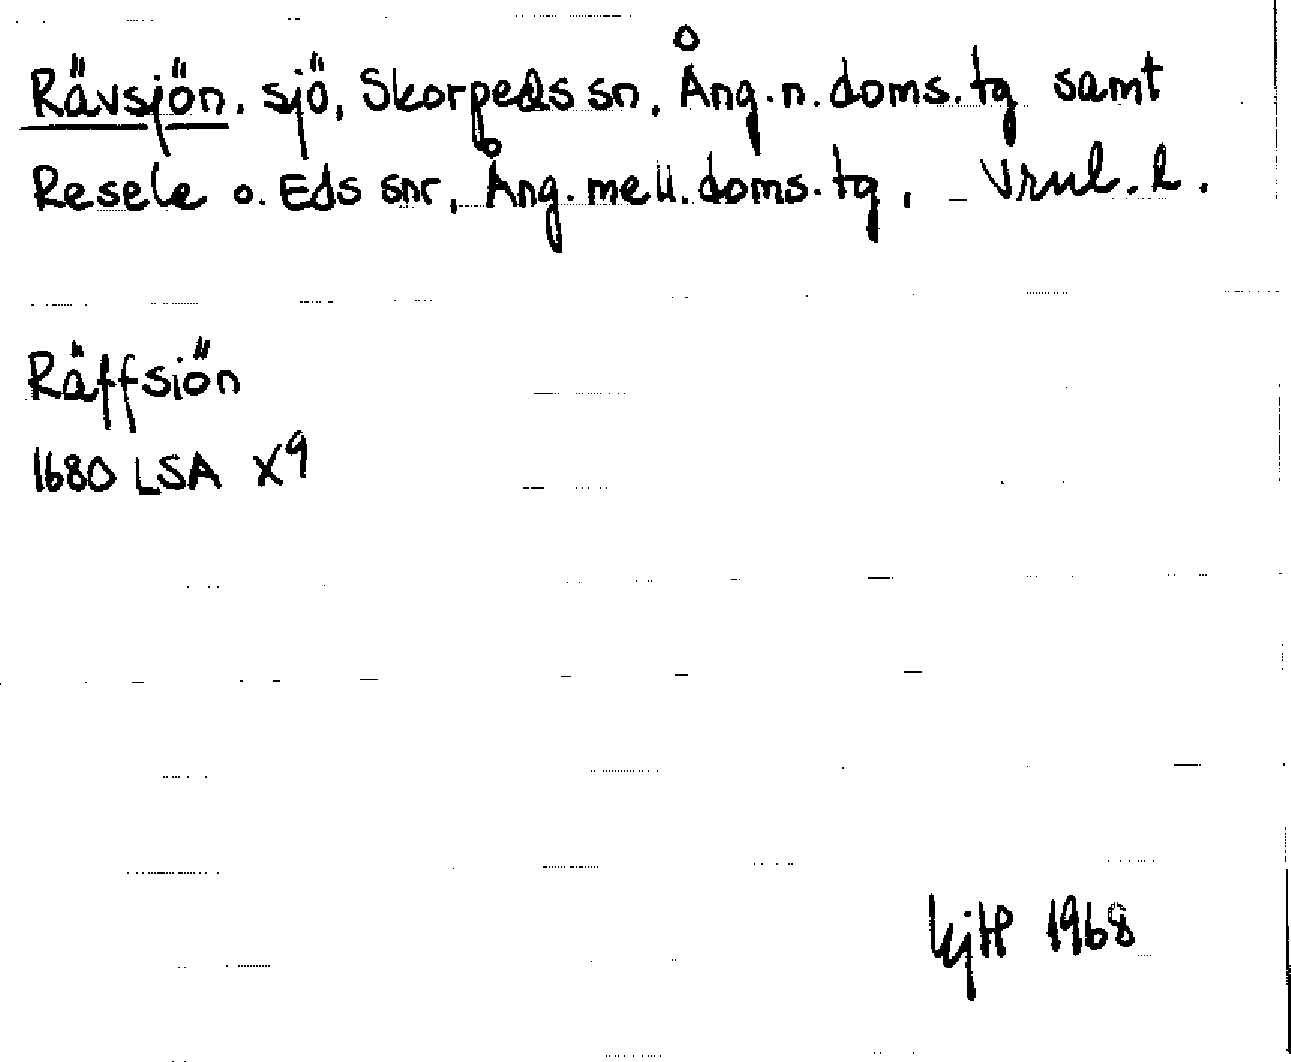 Rävsjön. sjö, Skorpeds sn, Ång.n.doms.tg samt
Resele o. Eds snr, Ång.mell.doms.tg. Vrnl.l.
Räffsiön
1680 LSA X9
1968